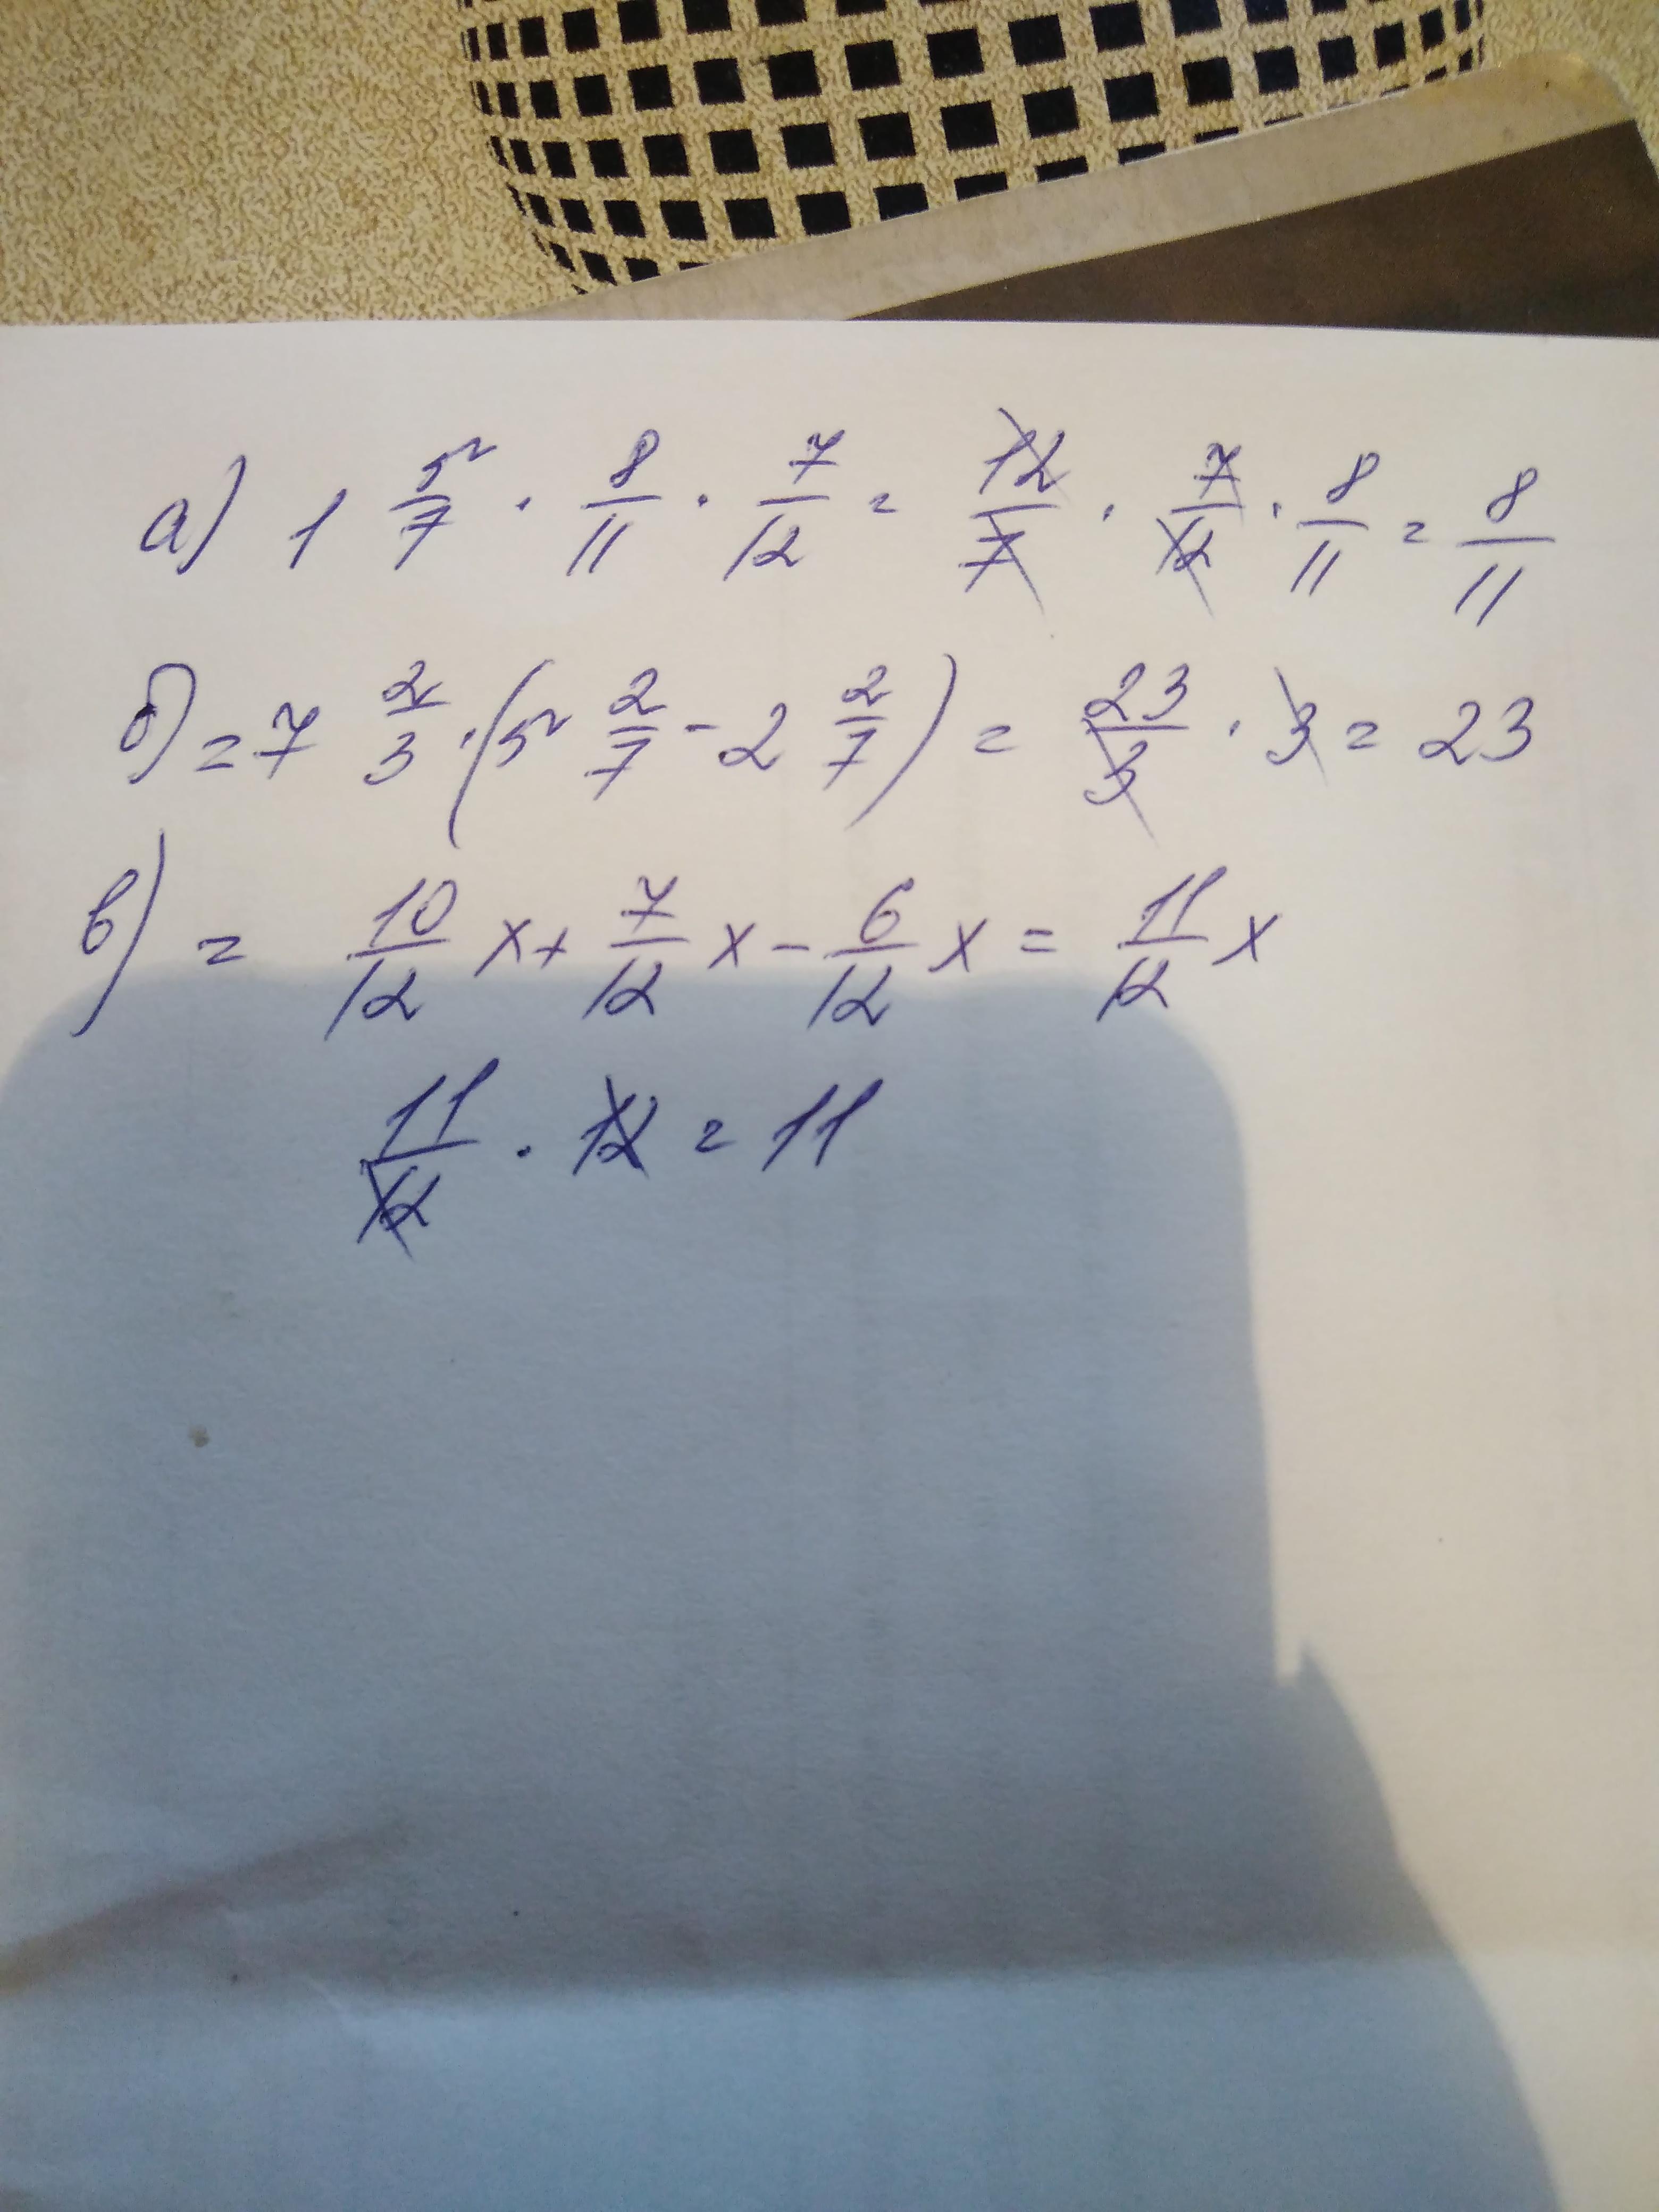 а) 1 5/7 · 8/11 · 7/12 = 12/7 · 7/12 · 8/11 = 8/11
б) = 7 2/3 · (5 2/7 - 2 2/7) = 23/3 · 3 = 23
в) = 10/12 x + 7/12 x - 6/12 x = 11/12 x
11/12 · 12 = 11